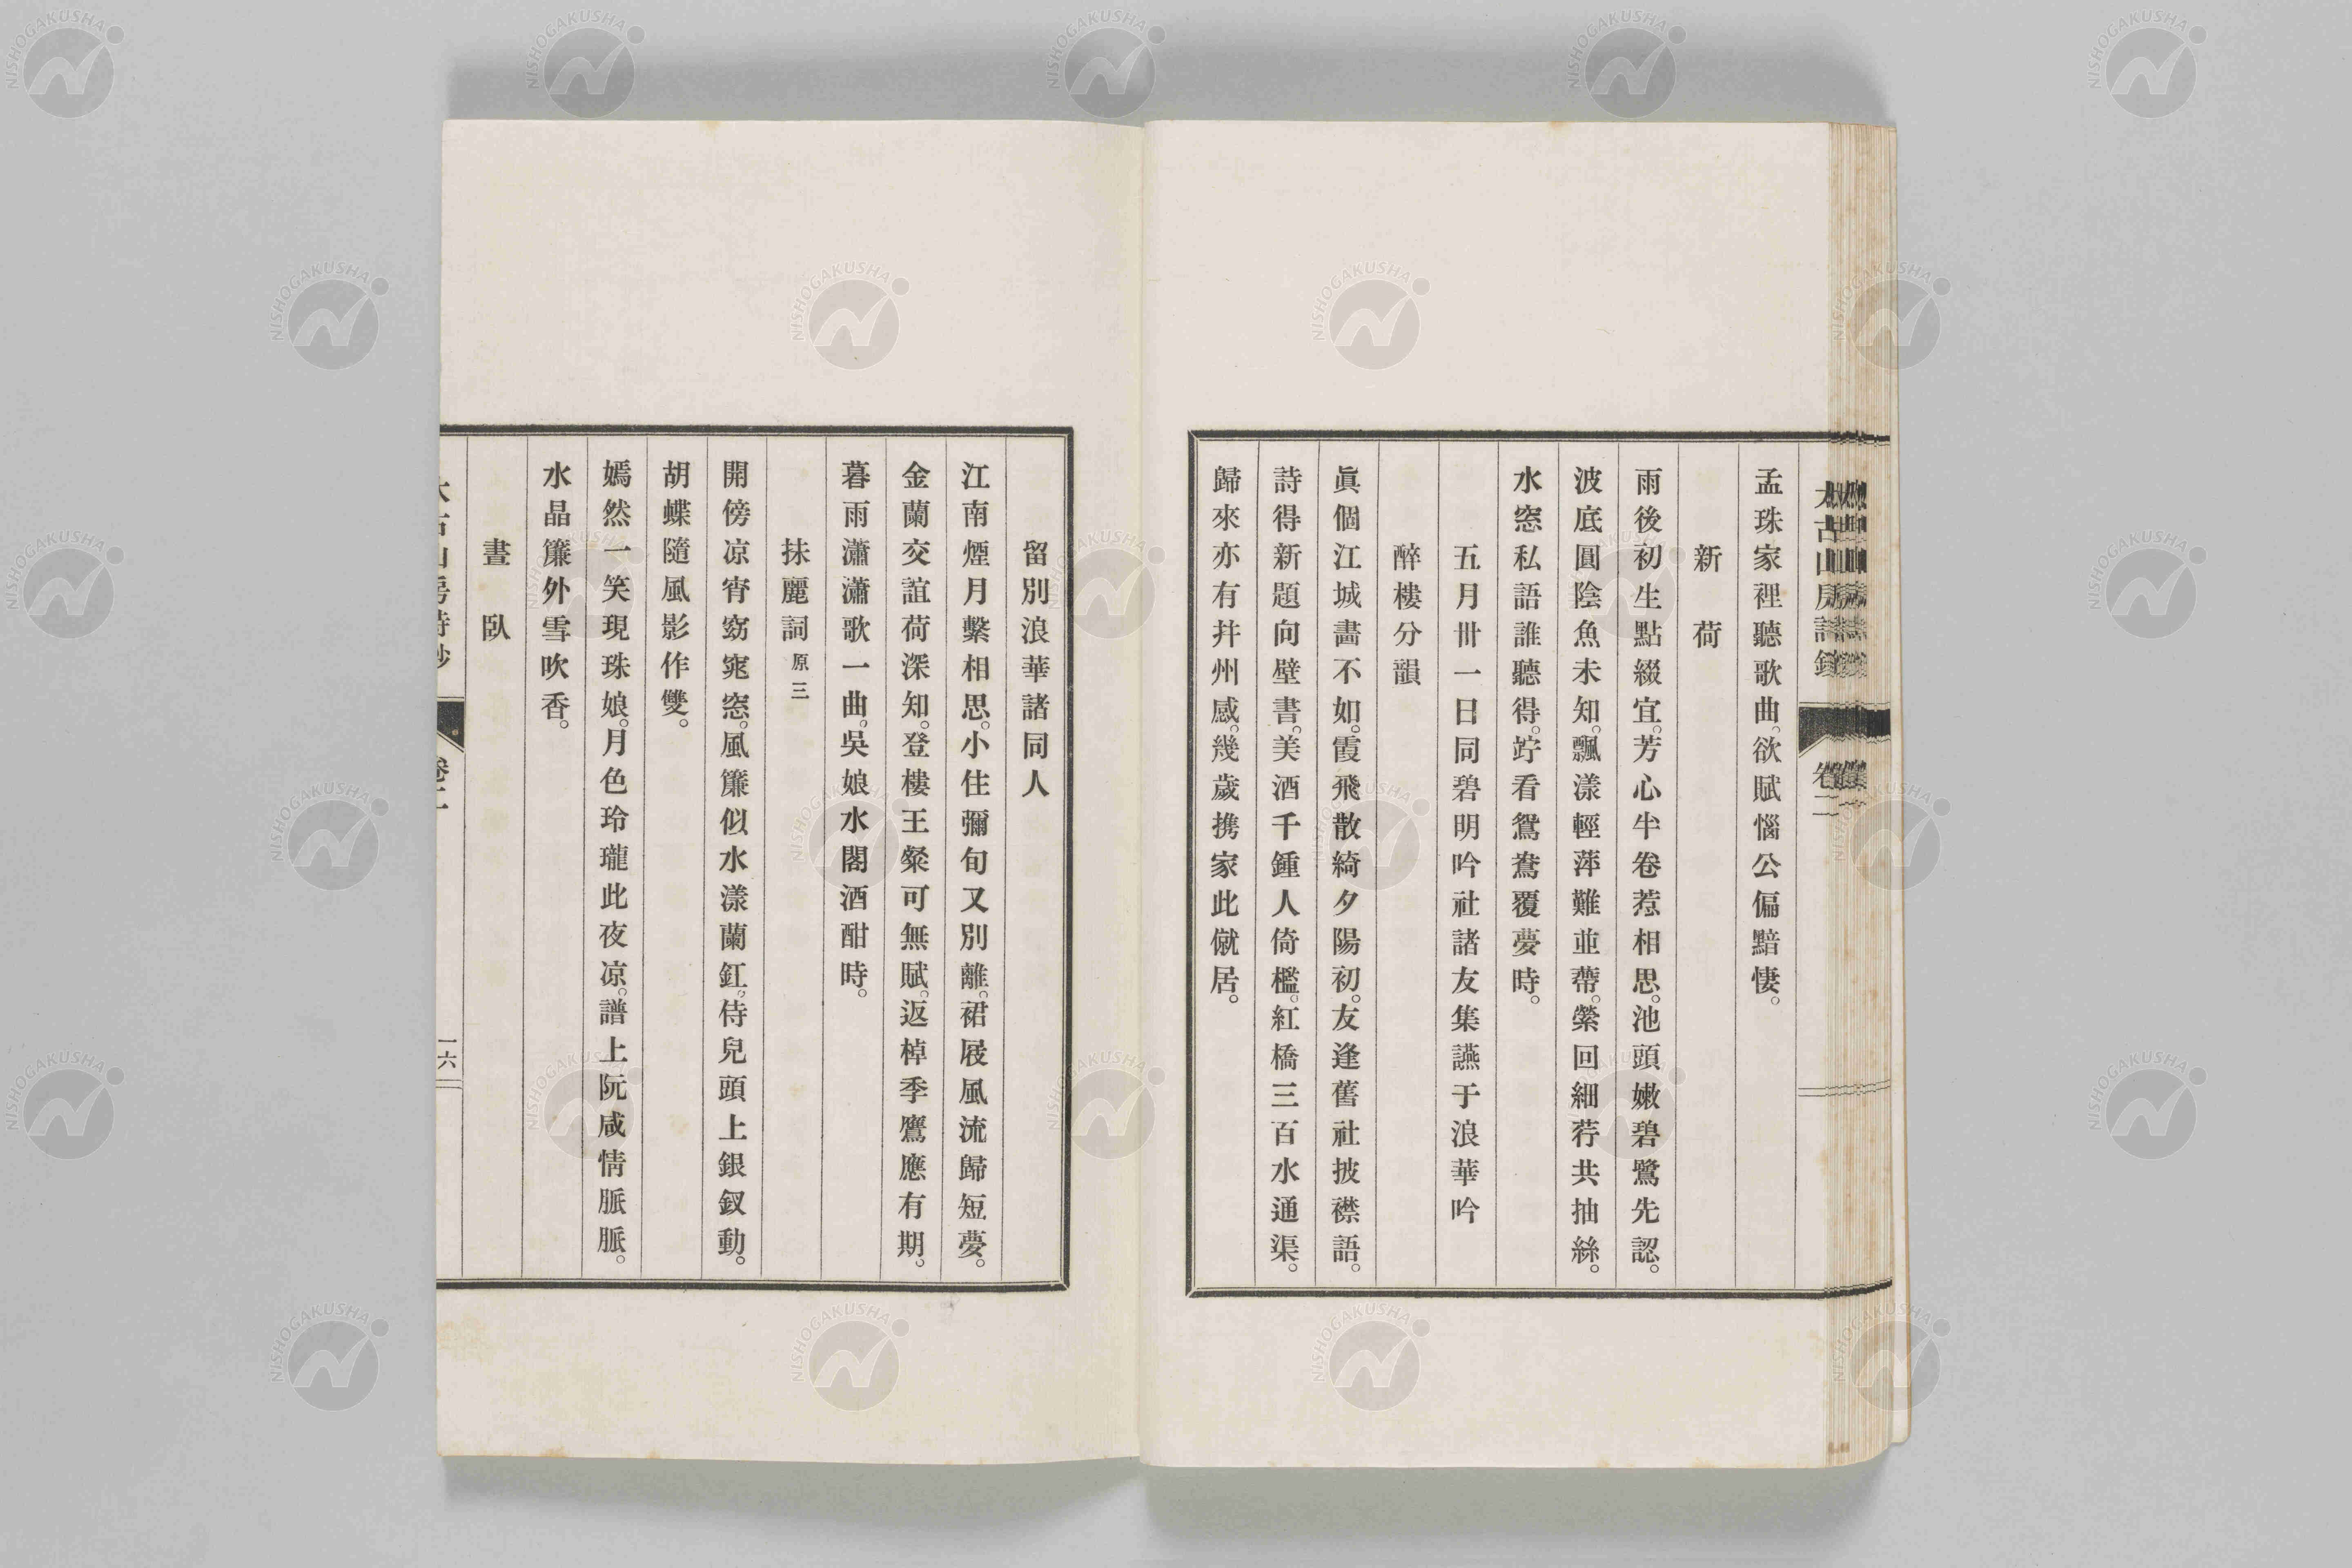 孟珠家裡聽歌曲。欲賦惱公偏黯悽。
新荷
雨後初生點綴宜。芳心半卷惹相思。池頭嫩碧鷺先認。
波底圓陰魚未知。飄漾輕萍難並蔕。縈回細荇共抽絲。
水窓私語誰聽得。竚看鴛鴦覆夢時。
五月卅一日同碧明吟社諸友集讌于浪華吟
醉樓分韻
眞個江城畵不如。霞飛散綺夕陽初。友逢舊社披襟語。
詩得新題向壁書。美酒千鍾人倚檻。紅橋三百水通渠。
歸來亦有幷州感。幾歲携家此僦居。
留別浪華諸同人
江南煙月繫相思。小住彌旬又別離。裙屐風流歸短夢。
金蘭交誼荷深知。登樓王粲可無賦。返棹季鷹應有期。
暮雨瀟瀟歌一曲。吳娘水閣酒酣時。
抹麗詞 原三
開傍凉宵窈窕窓。風簾似水漾蘭釭。侍兒頭上銀釵動。
胡蝶隨風影作雙。
嫣然一笑現珠娘。月色玲瓏此夜凉。譜上阮咸情脈脈。
水晶簾外雪吹香。
晝臥
太古山房詩鈔 卷二 一六
NISHOGAKUSHA